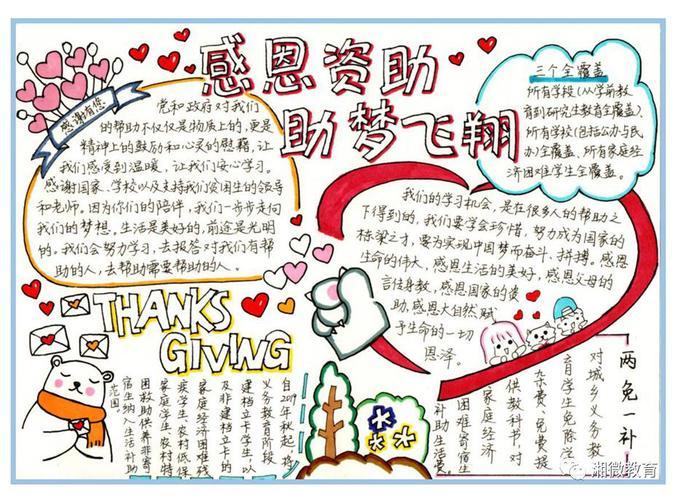 感恩资助
助梦飞翔
感谢有您
党和政府对我们
的帮助不仅仅是物质上的,更是
精神上的鼓励和心灵的慰藉,让
我们感受到温暖,让我们安心学习。
感谢国家、学校以及支持我们贫困生的领导
和老师。因为你们的陪伴,我们一步步走向
我们的梦想。生活是美好的,前途是光明
的。我们会努力学习,去报答对我们有帮
助的人,去帮助需要帮助的人。
三个全覆盖
所有学校(从学前教
育到研究生教育全覆盖)、
所有学校(包括公办与民
办)全覆盖、所有家庭经
济困难学生全覆盖。
我们的学习机会,是在很多人的帮助之
下得到的,我们要学会珍惜,努力成为国家的
栋梁之才,要为实现中国梦而奋斗、拼搏。感恩
生命的伟大,感恩生活的美好,感恩父母的
言传身教,感恩国家的资
助,感恩大自然赋
予生命的一切
恩泽。
THANKS
GIVING
两免一补
对城乡义务教
育学生免除学
杂费、免费提
供教科书,对
家庭经济
困难寄宿生
补助生活费。
自2019年秋起,将
义务教育阶段
建档立卡学生,以
及非建档立卡的
家庭经济困难残
疾学生、农村低保
家庭学生、农村特
困救助供养非寄
宿生纳入生活补助
范围。
湘微教育